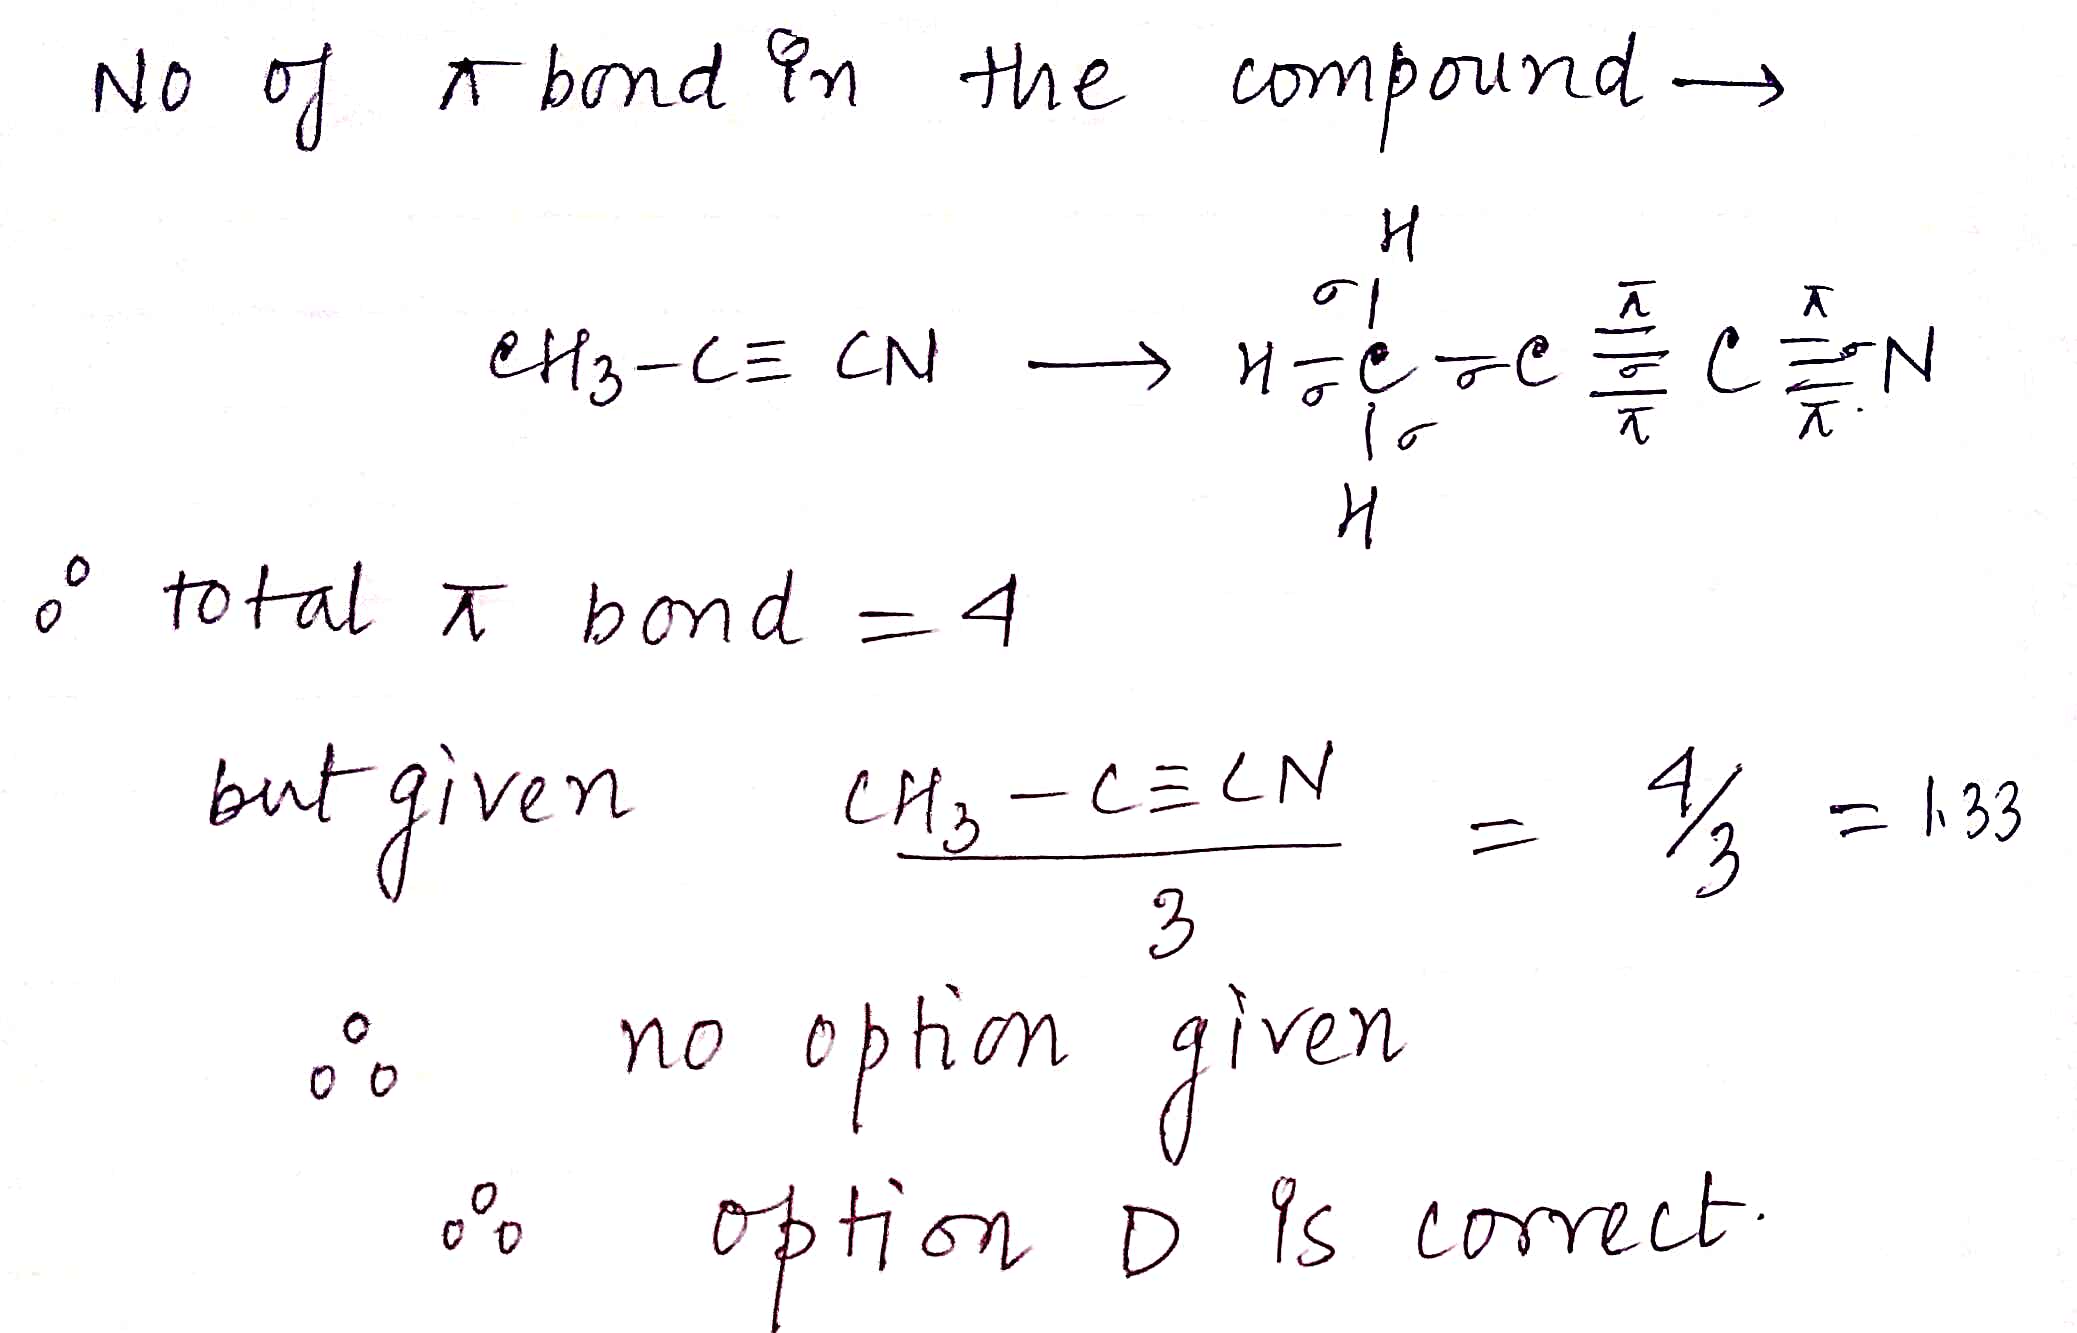 No of π bond in the compound →
H
σ π π
CH3-C≡ CN → H-C-C≡C≡N
σ σ σ σ
σ π π
H
∴ total π bond = 4
but given CH3-C≡CN = 4/3 = 1.33
3
∴ no option given
∴ option D is correct.